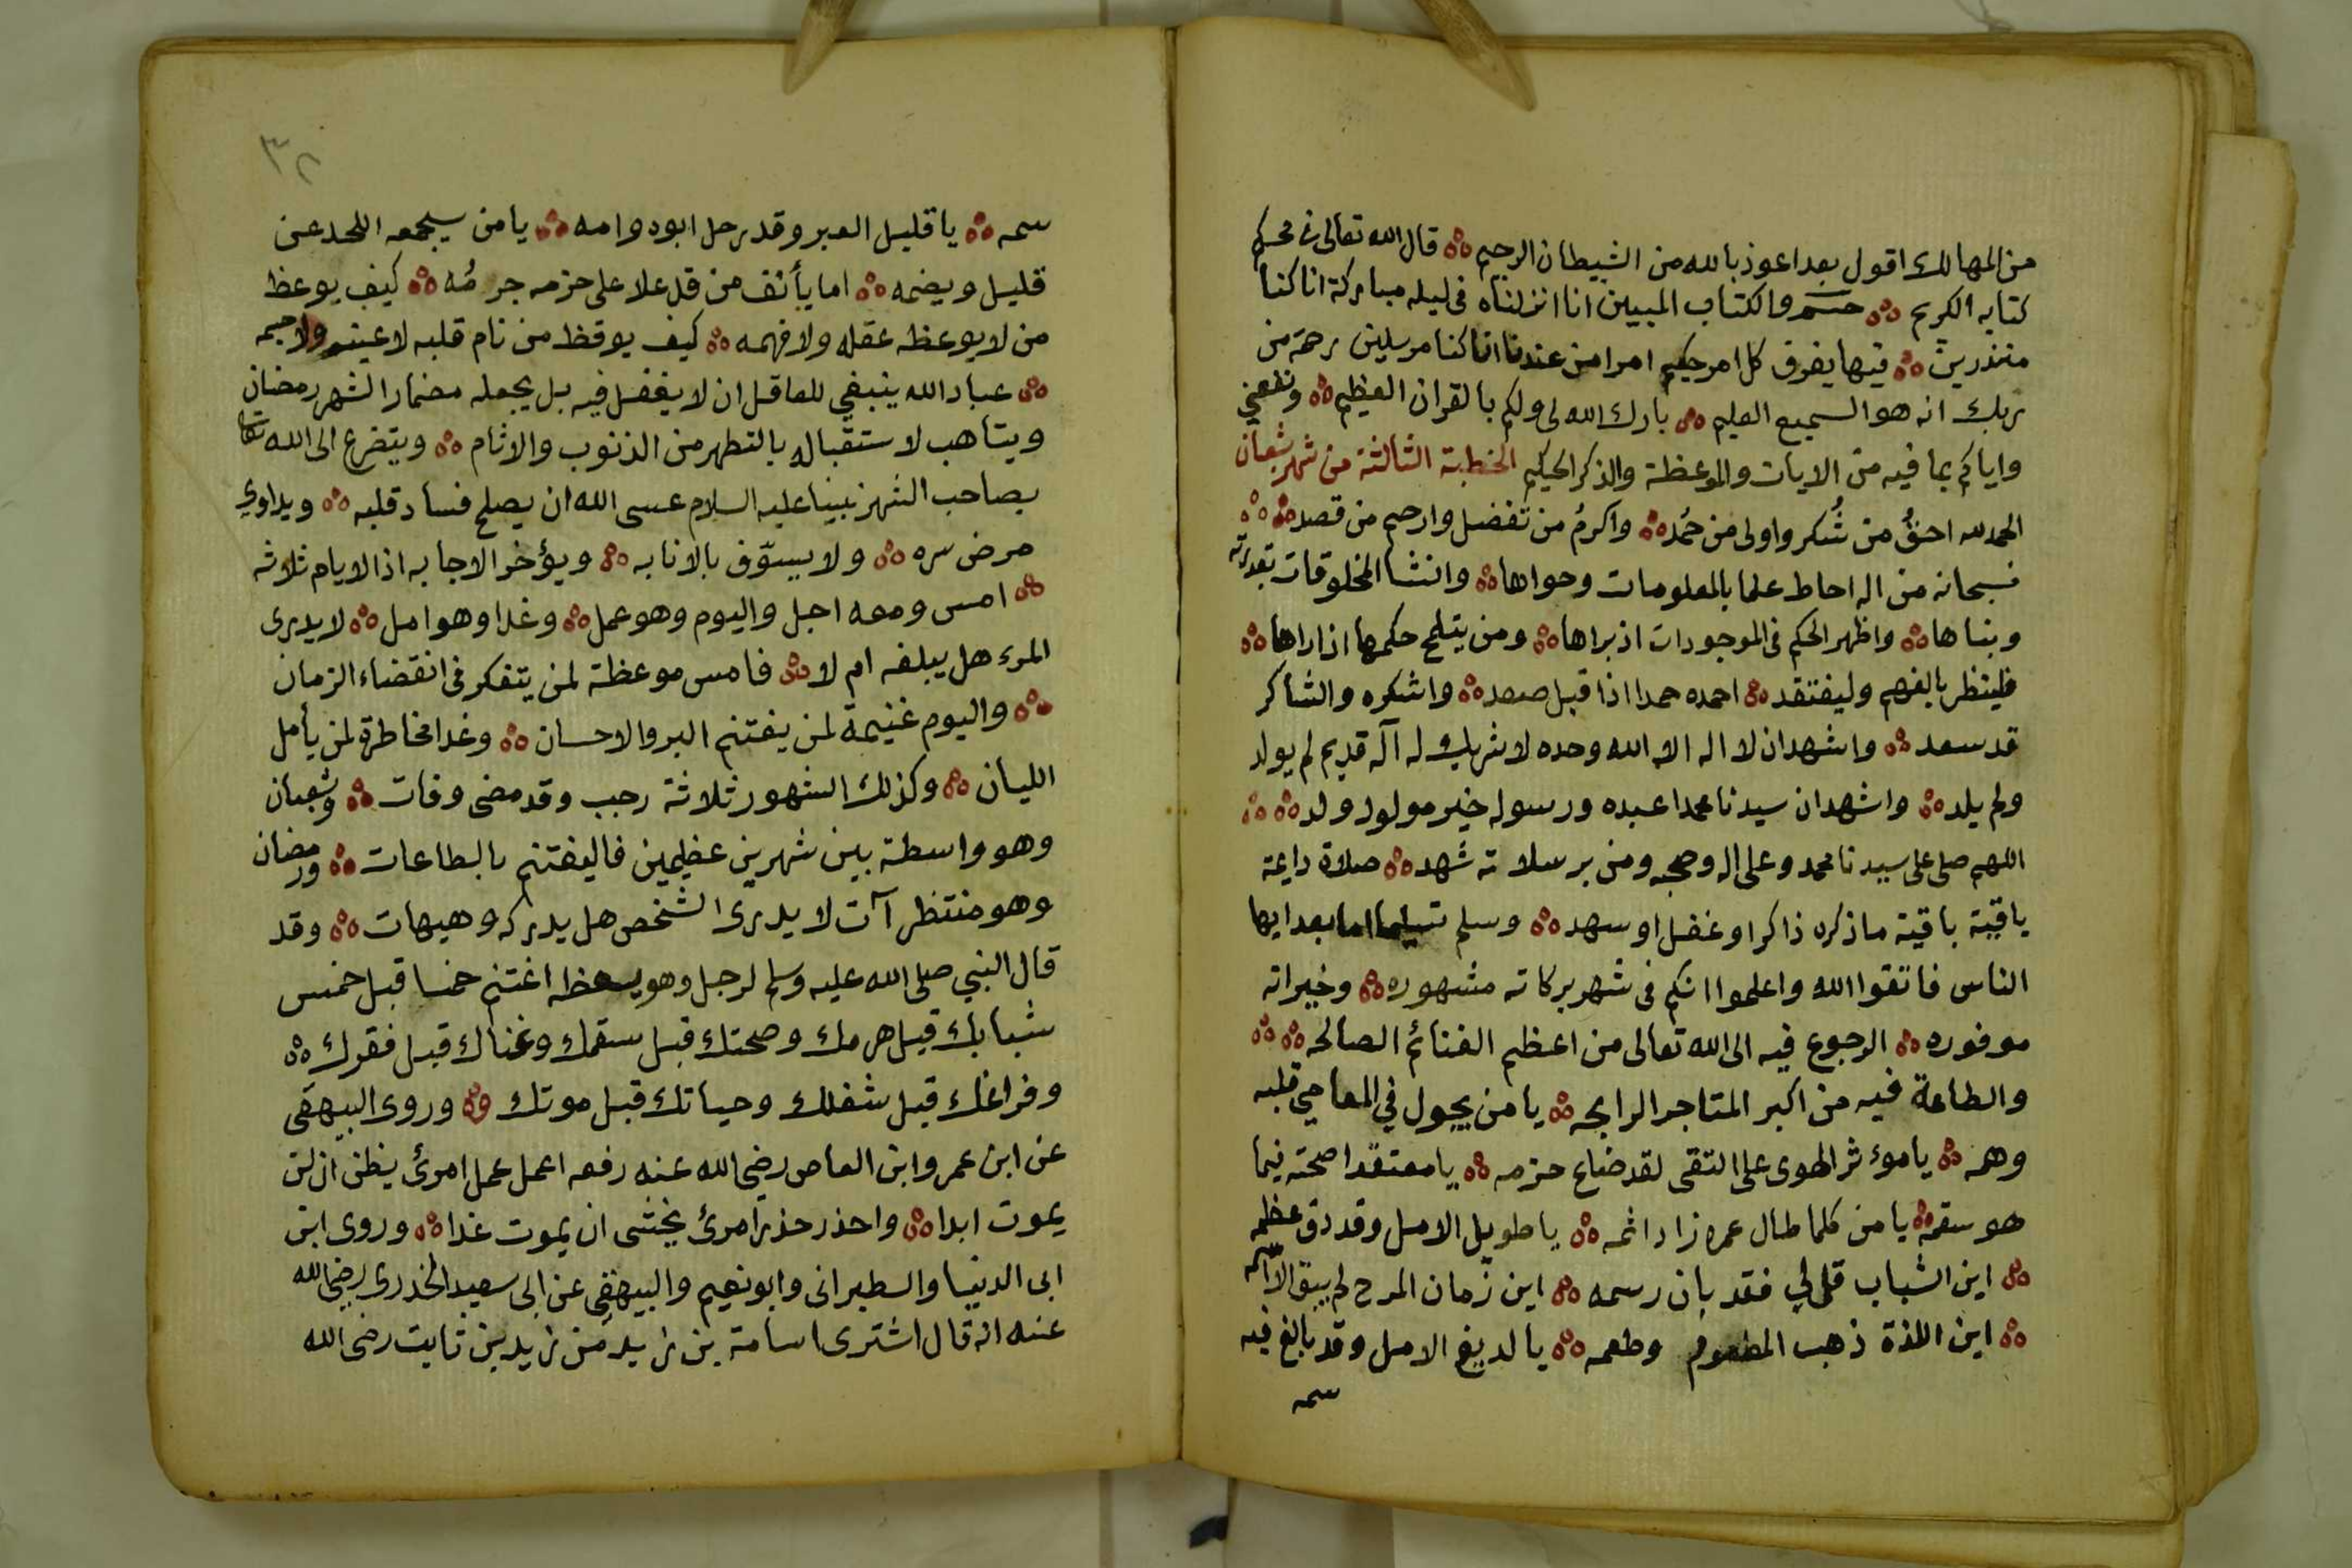 من المهالك اقول بعد اعوذ بالله من الشيطان الرجيم قال الله تعالى فى محكم
كتابه الكريم حم والكتاب المبين انا انزلناه فى ليله مباركة انا كنا
منذرين فيها يفرق كل امر حكيم امرا من عندنا انا كنا مرسلين رحمة من
ربك انه هو السميع العليم بارك الله لى ولكم بالقران العظيم ونفعني
واياكم بما فيه من الايات والموعظة والذكر الحكيم الخطبة الثالثة من شهر شعبان
الحمد لله احقُ من شُكر واولى من حُمد واكرمُ من تفضل وارحم من قصد
فسبحانه من اله احاط علما بالمعلومات وحواها وانشا المخلوقات بقدرته
وبناها واظهر الحكم فى الموجودات اذ براها ومن يتلمح حكمها اذا راها
فلينظر بالفهم وليفتقد احمده حمدا اذا قبل صعد واشكره والشاكر
قد سعد واشهد ان لا اله الا الله وحده لا شريك له آله قديم لم يولد
ولم يلد واشهد ان سيدنا محمدا عبده ورسوله خير مولود ولد
اللهم صلى على سيدنا محمد وعلى اله وصحبه ومن برسلاته شهد صلاة دايمة
ياقية باقية ماذكره ذاكرا وغفل اوسهد وسلم تسليما اما بعد ايها
الناس فاتقوا الله واعلموا انكم فى شهر بركاته مشهوره وخيراته
موفوره الرجوع فيه الى الله تعالى من اعظم الغنائم الصالحه
والطاعة فيه من اكبر المتاجر الرابحه يا من يجول في المعاصي قلبه
وهمه يا موءثر الهوى على التقى لقد ضاع حزمه يا معتقدا صحته فيما
هو سقمه يا من كلما طال عمره زاد اثمه يا طويل الامل وقد دق عظمه
اين الشباب قل لي فقد بان رسمه اين زمان المرح لم يبق الا اسمه
اين اللذة ذهب المطعوم وطعمه يا لديغ الامل وقد بالغ فيه
سمه
٣٢
سمه يا قليل العبر وقد رحل ابوه وامه يا من سيجمعه اللحد عن
قليل ويضمه اما يأنف من قد علا على حزمه جرمُه كيف يوعظ
من لا يوعظه عقله ولا فهمه كيف يوقظ من نام قلبه لا عينه ولا جسمه
عباد الله ينبغي للعاقل ان لا يغفل فيه بل يجعله مضمار الشهر رمضان
ويتاهب لاستقباله بالتطهر من الذنوب والاثام ويتضرع الى الله تعالى
بصاحب الشهر نبينا عليه السلام عسى الله ان يصلح فساد قلبه ويداوي
مرض سره ولا يسوّف بالانابه ويؤخر الاجابه اذ الايام ثلاثه
امس ومعه اجل واليوم وهو عمل وغدا وهو امل لا يدرى
المرء هل يبلغه ام لا فامس موعظة لمن يتفكر فى انقضاء الزمان
واليوم غنيمة لمن يغتنم البر والاحسان وغدا مخاطرة لمن يأمل
الليان وكذلك الشهور ثلاثة رجب وقد مضى وفات وشعبان
وهو واسطة بين شهرين عظيمين فاليغتنم بالطاعات ورمضان
وهو منتظر آت لا يدرى الشخص هل يدركه وهيهات وقد
قال النبي صلى الله عليه وسلم لرجل وهو يعظه اغتنم خمسا قبل خمس
شبابك قبل هرمك وصحتك قبل سقمك وغناك قبل فقرك
وفراغك قبل شغلك وحياتك قبل موتك وروى البيهقى
عن ابن عمر وابن العاص رضي الله عنه رفعه اعمل عمل امرئ يظن ان لن
يموت ابدا واحذر حذر امرئ يخشى ان يموت غدا وروى ابن
ابى الدنيا والطبرانى وابو نعيم والبيهقى عن ابى سعيد الخدرى رضي الله
عنه انه قال اشترى اسامة بن زيد من زيد بن ثابت رضى الله